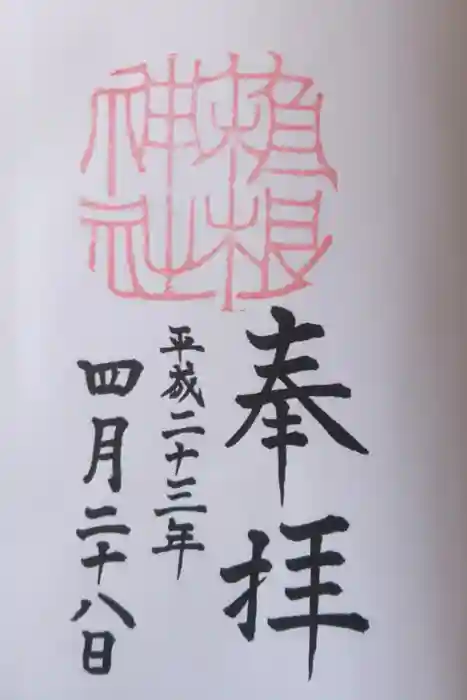 箱根
神社
奉拝
平成二十三年
四月二十八日